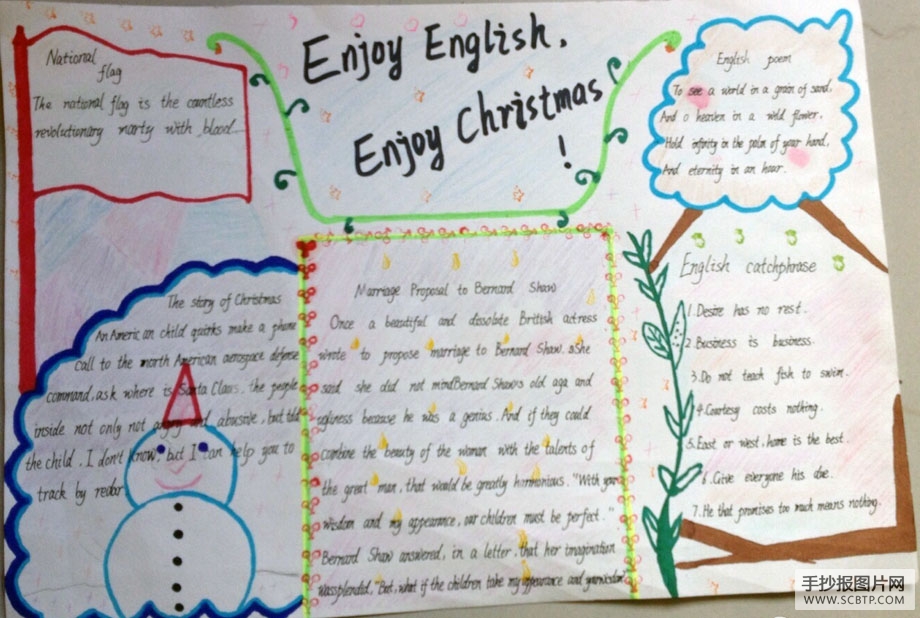 National
flag
The national flag is the countless
revolutionary marty with blood...
Enjoy English.
Enjoy Christmas
!
English poem
To see a world in a grain of sand,
And o heaven in a wild flower,
Hold infinity in the palm of your hand,
And eternity in an hour.
The story of Christmas
An American child quinks make a phone
call to the north American aerospace defense
command, ask where is Santa Claus. the people
inside not only not angry and abusive, but told
the child. I don't know, but I can help you to
track by redar
Marriage Proposal to Bernard Shaw
Once a beautiful and dissolute British actress
wrote to propose marriage to Bernard Shaw. She
said she did not mind Bernard Shaw's old aga and
ugliness because he was a genius. And if they could
combine the beauty of the woman with the talents of
the great man, that would be greatly harmonious. "With your
wisdom and my appearance, our children must be perfect."
Bernard Shaw answered, in a letter, that her imagination
was splendid, "But, what if the children take my appearance and your wisdom?
English catchphrase
1. Desire has no rest.
2. Business is business.
3. Do not teach fish to swim.
4. Courtesy costs nothing.
5. East or west, home is the best.
6. Give everyone his due.
7. He that promises too much means nothing.
手抄报图片网
WWW.SCBTP.COM